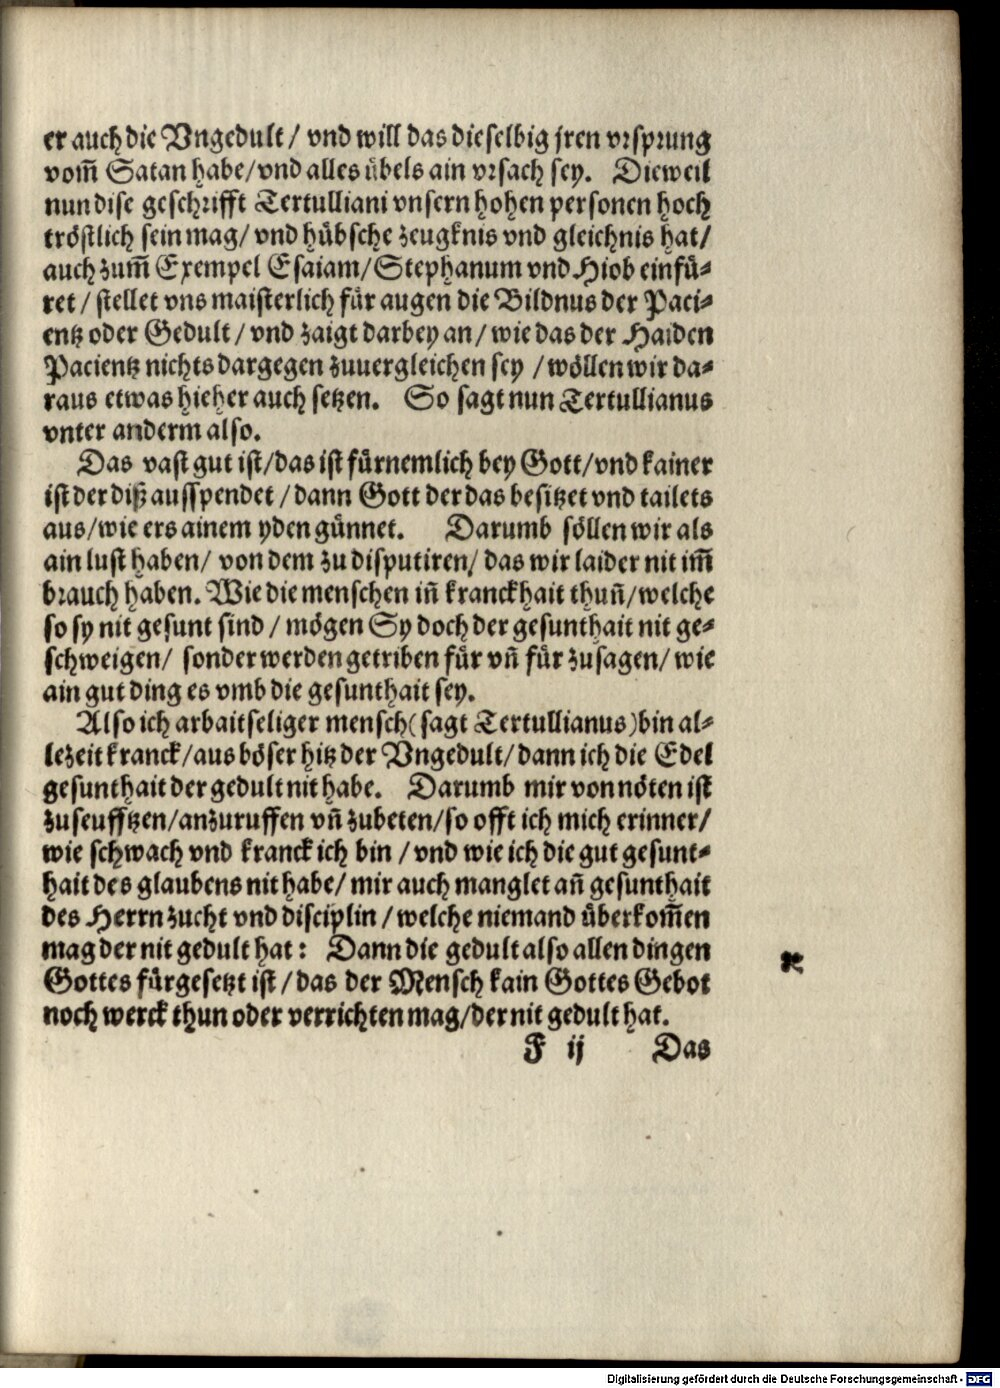 er auch die Vngedult / vnd will das dieselbig jren vrsprung
vom̄ Satan habe / vnd alles übels ain vrsach sey. Dieweil
nun dise geschrifft Tertulliani vnsern hohen personen hoch
tröstlich sein mag / vnd hübsche zeugknis vnd gleichnis hat /
auch zum̄ Exempel Esaiam / Stephanum vnd Hiob einfü⸗
ret / stellet vns maisterlich für augen die Bildnus der Paci⸗
entz oder Gedult / vnd zaigt darbey an / wie das der Haiden
Pacientz nichts dargegen zuuergleichen sey / wöllen wir da⸗
raus etwas hieher auch setzen. So sagt nun Tertullianus
vnter anderm also.
Das vast gut ist / das ist fürnemlich bey Gott / vnd kainer
ist der diß ausspendet / dann Gott der das besitzet vnd tailets
aus / wie ers ainem yden günnet. Darumb söllen wir als
ain lust haben / von dem zu disputiren / das wir laider nit im̄
brauch haben. Wie die menschen in̄ kranckhait thun̄ / welche
so sy nit gesunt sind / mögen Sy doch der gesunthait nit ge⸗
schweigen / sonder werden getriben für vn̄ für zu sagen / wie
ain gut ding es vmb die gesunthait sey.
Also ich arbaitseliger mensch (sagt Tertullianus) bin al⸗
lezeit kranck / aus böser hitz der Vngedult / dann ich die Edel
gesunthait der gedult nit habe. Darumb mir von nöten ist
zu seufftzen / anzuruffen vn̄ zubeten / so offt ich mich erinner /
wie schwach vnd kranck ich bin / vnd wie ich die gut gesunt⸗
hait des glaubens nit habe / mir auch manglet an̄ gesunthait
des Herrn zucht vnd disciplin / welche niemand überkom̄en
mag der nit gedult hat: Dann die gedult also allen dingen
Gottes fürgesetzt ist / das der Mensch kain Gottes Gebot
noch werck thun oder verrichten mag / der nit gedult hat.
F ij Das
Digitalisierung gefördert durch die Deutsche Forschungsgemeinschaft - DFG